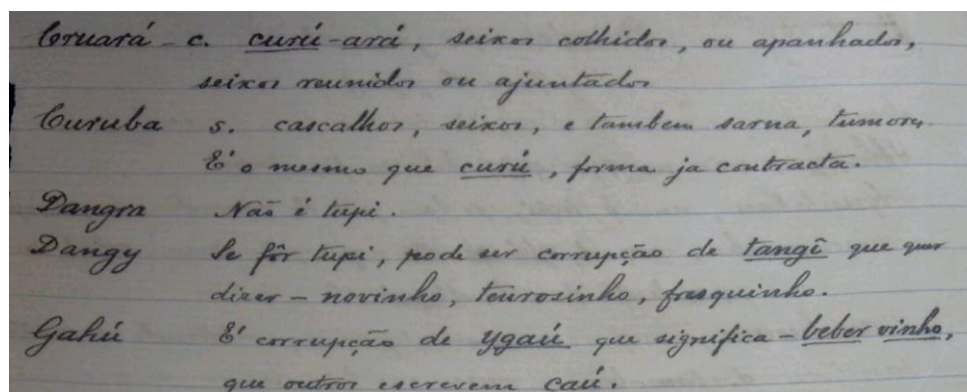 Cruará - c. curú-ará, seixos colhidos, ou apanhados,
seixos reunidos ou ajuntados
Curuba s. cascalhos, seixos, e tambem sarna, tumores.
E' o mesmo que curú, forma ja contracta.
Dangra Não é tupi.
Dangy Se fôr tupi, pode ser corrupção de tangĩ que quer
dizer - novinho, tenrosinho, fresquinho.
Gahú E' corrupção de ygaú que significa - beber vinho,
que outros escrevem caú.